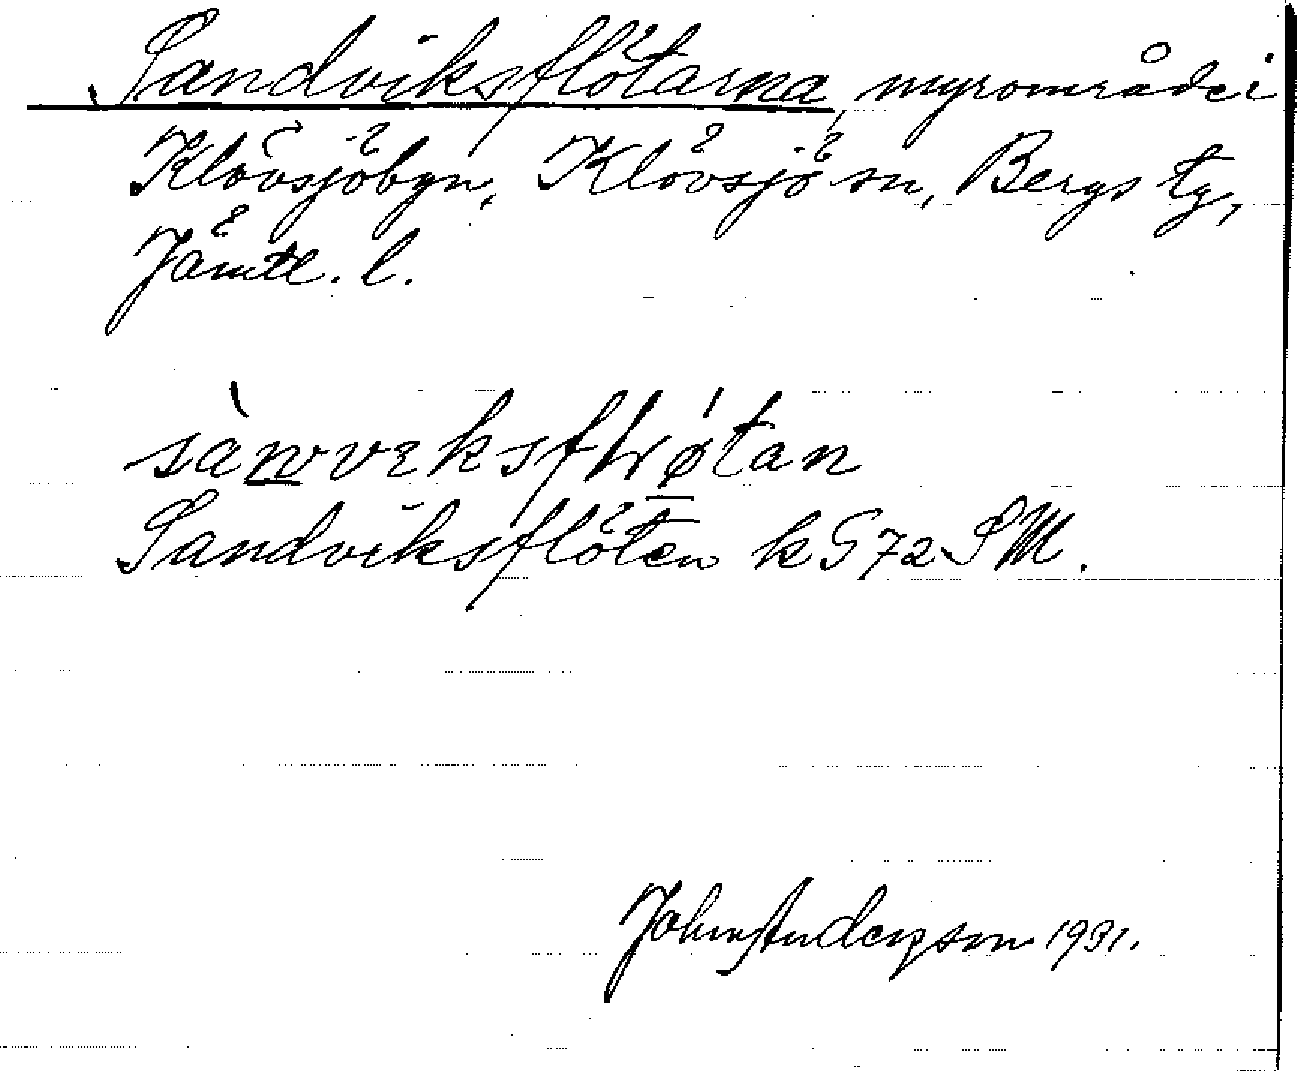 Sandviksflötarna, myrområde i
Klövsjöbyn, Klövsjö sn, Bergs tg,
Jämtl. l.
Sandviksflöten k G72 SM.
John Anderson 1931.